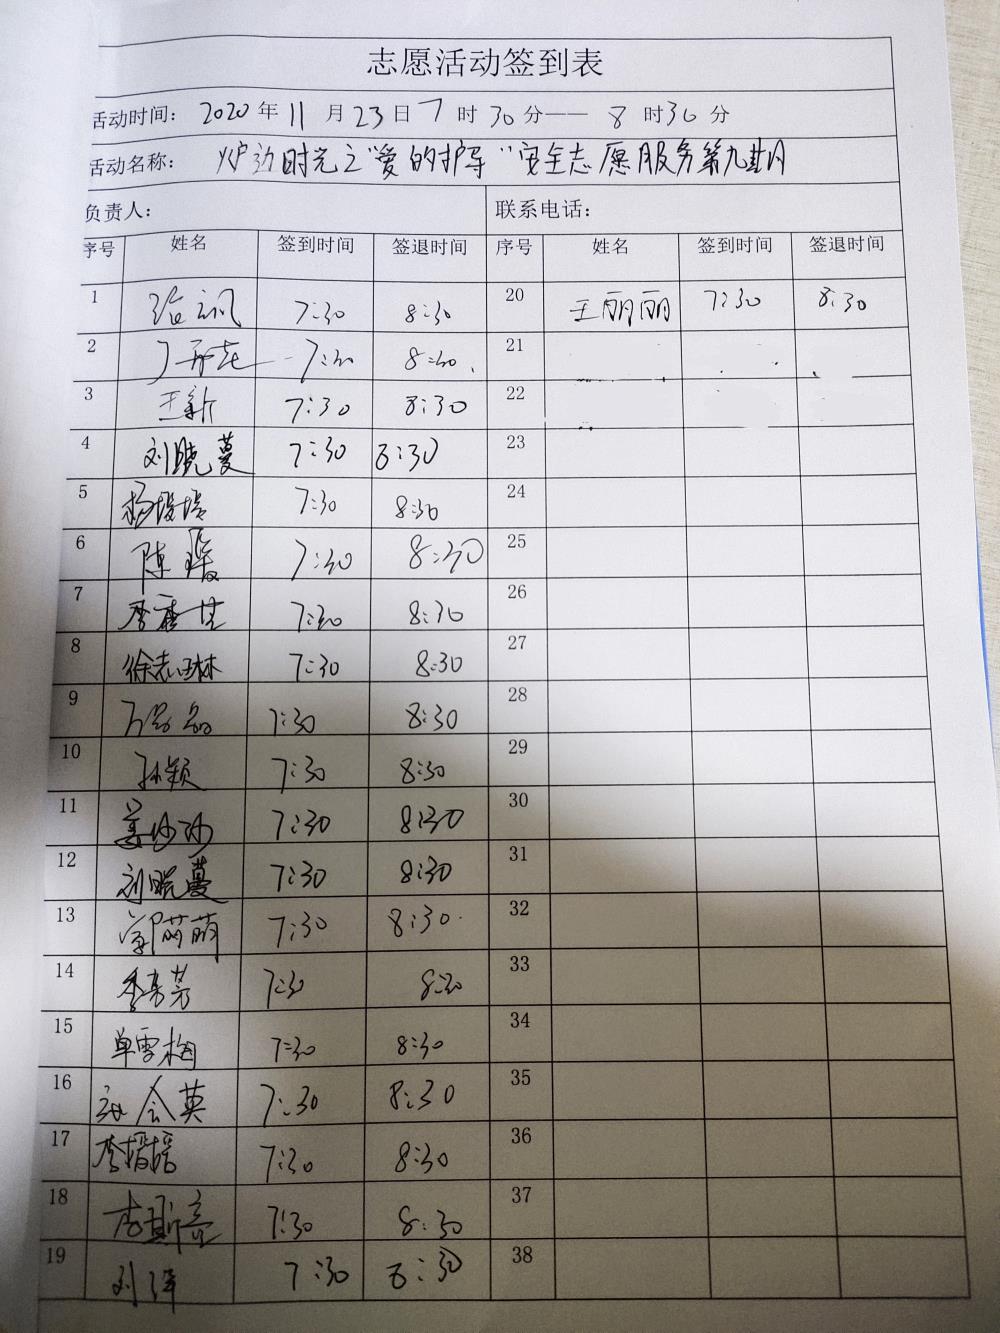 志愿活动签到表
活动时间: 2020 年 11 月 23 日 7 时 30 分—— 8 时 30 分
活动名称: 时光之"爱的护导"安全志愿服务第九期
负责人: 联系电话:
序号 姓名 签到时间 签退时间 序号 姓名 签到时间 签退时间
1 7:30 8:30 20 王丽丽 7:30 8:30
2 7:30 8:30 21
3 王新 7:30 8:30 22
4 刘晓蔓 7:30 8:30 23
5 7:30 8:30 24
6 陈 7:30 8:30 25
7 7:30 8:30 26
8 徐志琳 7:30 8:30 27
9 7:30 8:30 28
10 孙颖 7:30 8:30 29
11 姜沙沙 7:30 8:30 30
12 刘晓蔓 7:30 8:30 31
13 郭萌萌 7:30 8:30 32
14 7:30 8:30 33
15 单雪梅 7:30 8:30 34
16 会英 7:30 8:30 35
17 7:30 8:30 36
18 李斯亮 7:30 8:30 37
19 刘洋 7:30 8:30 38